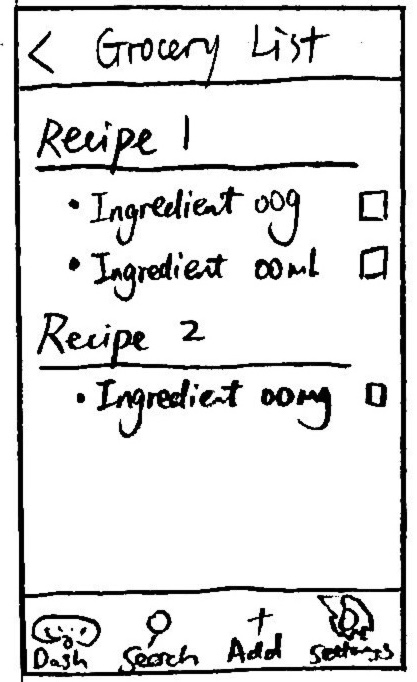 < Grocery List
Recipe 1
• Ingredient 00g
• Ingredient 00ml
Recipe 2
• Ingredient 00mg
Dash Search Add Settings